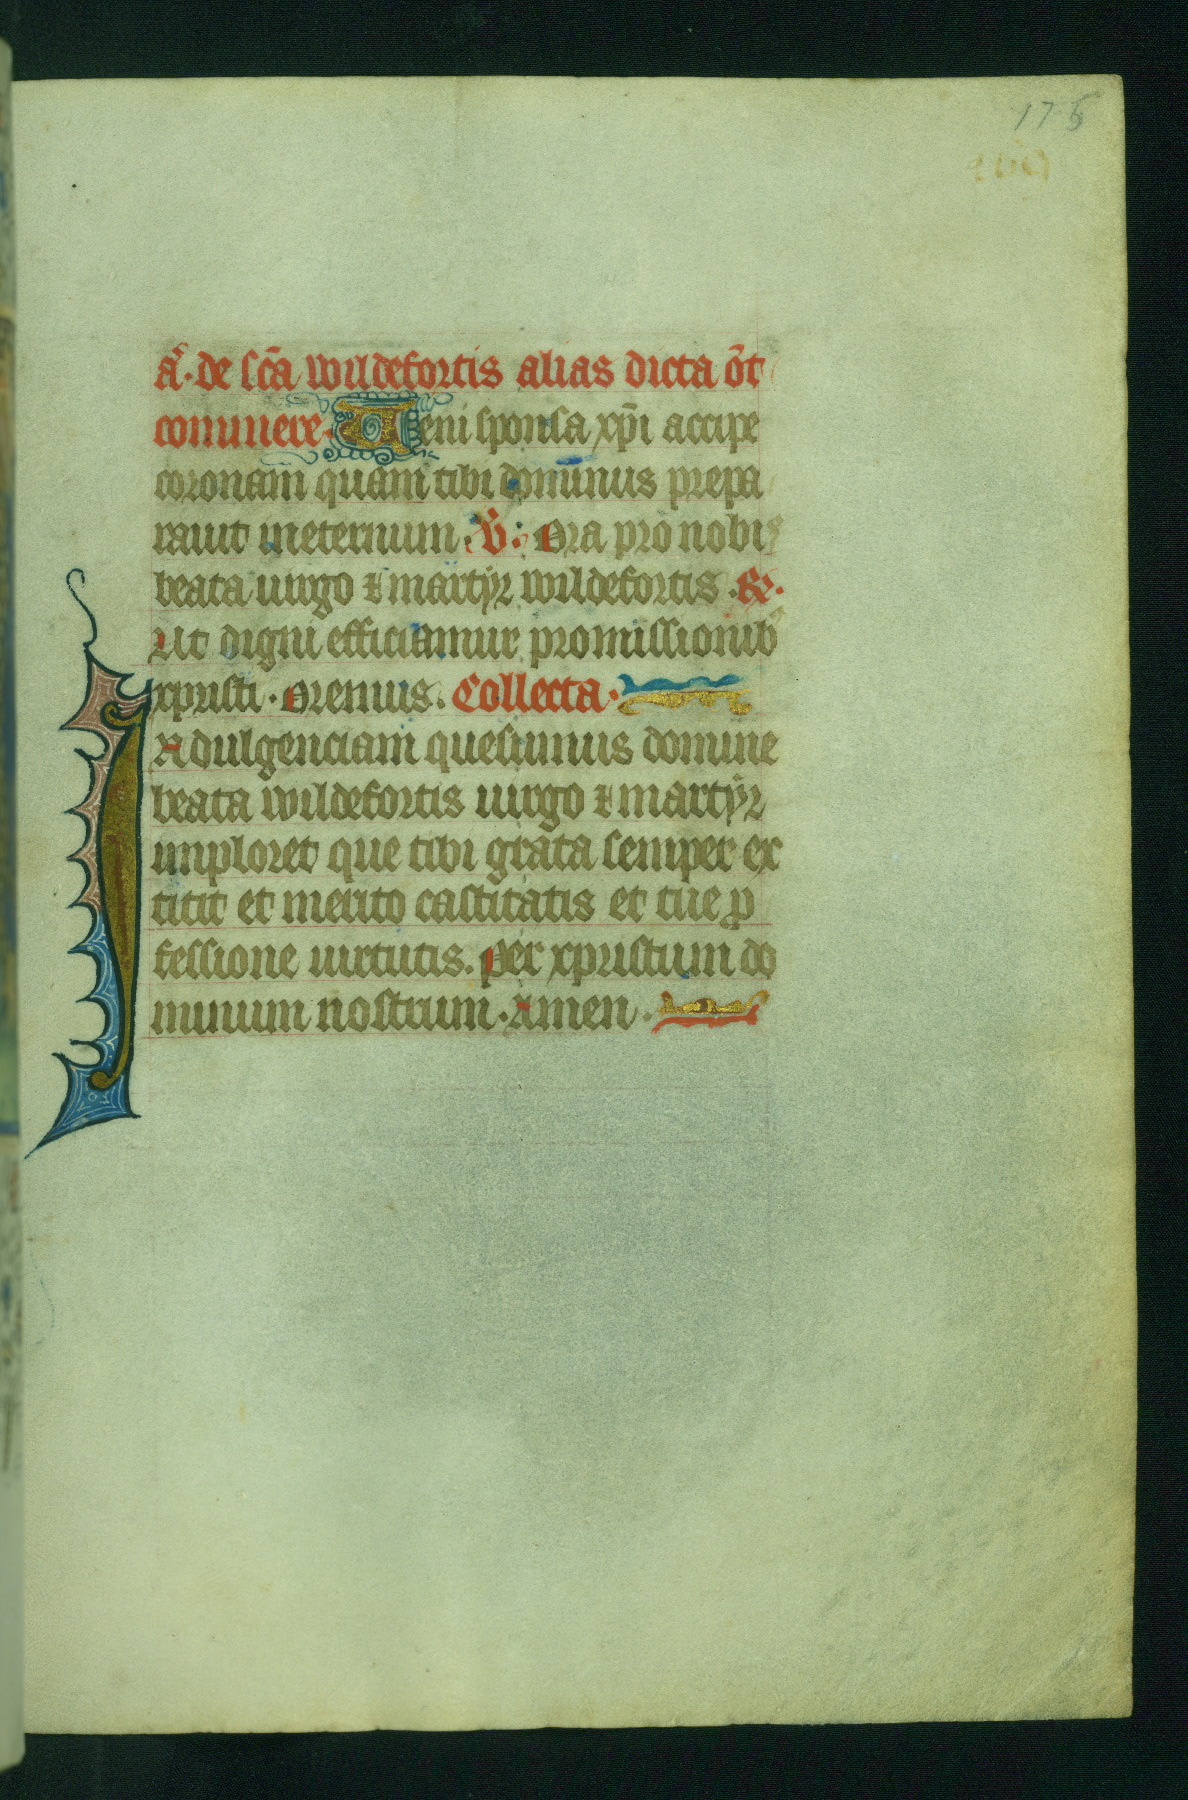 175
añ. de scã wildefortis alias dicta õt
comniere. Veni sponsa xp̃i accipe
coronam quam tibi dominus prepa
rauit ineternum. V̓. Ora pro nobis
beata uirgo ⁊ martyr wildefortis. R̶.
Ut digni efficiamur promissionib⁹
xpristi. Oremus. Collecta.
INdulgenciam quesumus domine
beata wildefortis uirgo ⁊ martyr
imploret que tibi grata semper ex
titit et merito castitatis et tue ꝓ
fessione uirtutis. Per xpristum do
minum nostrum. Amen.